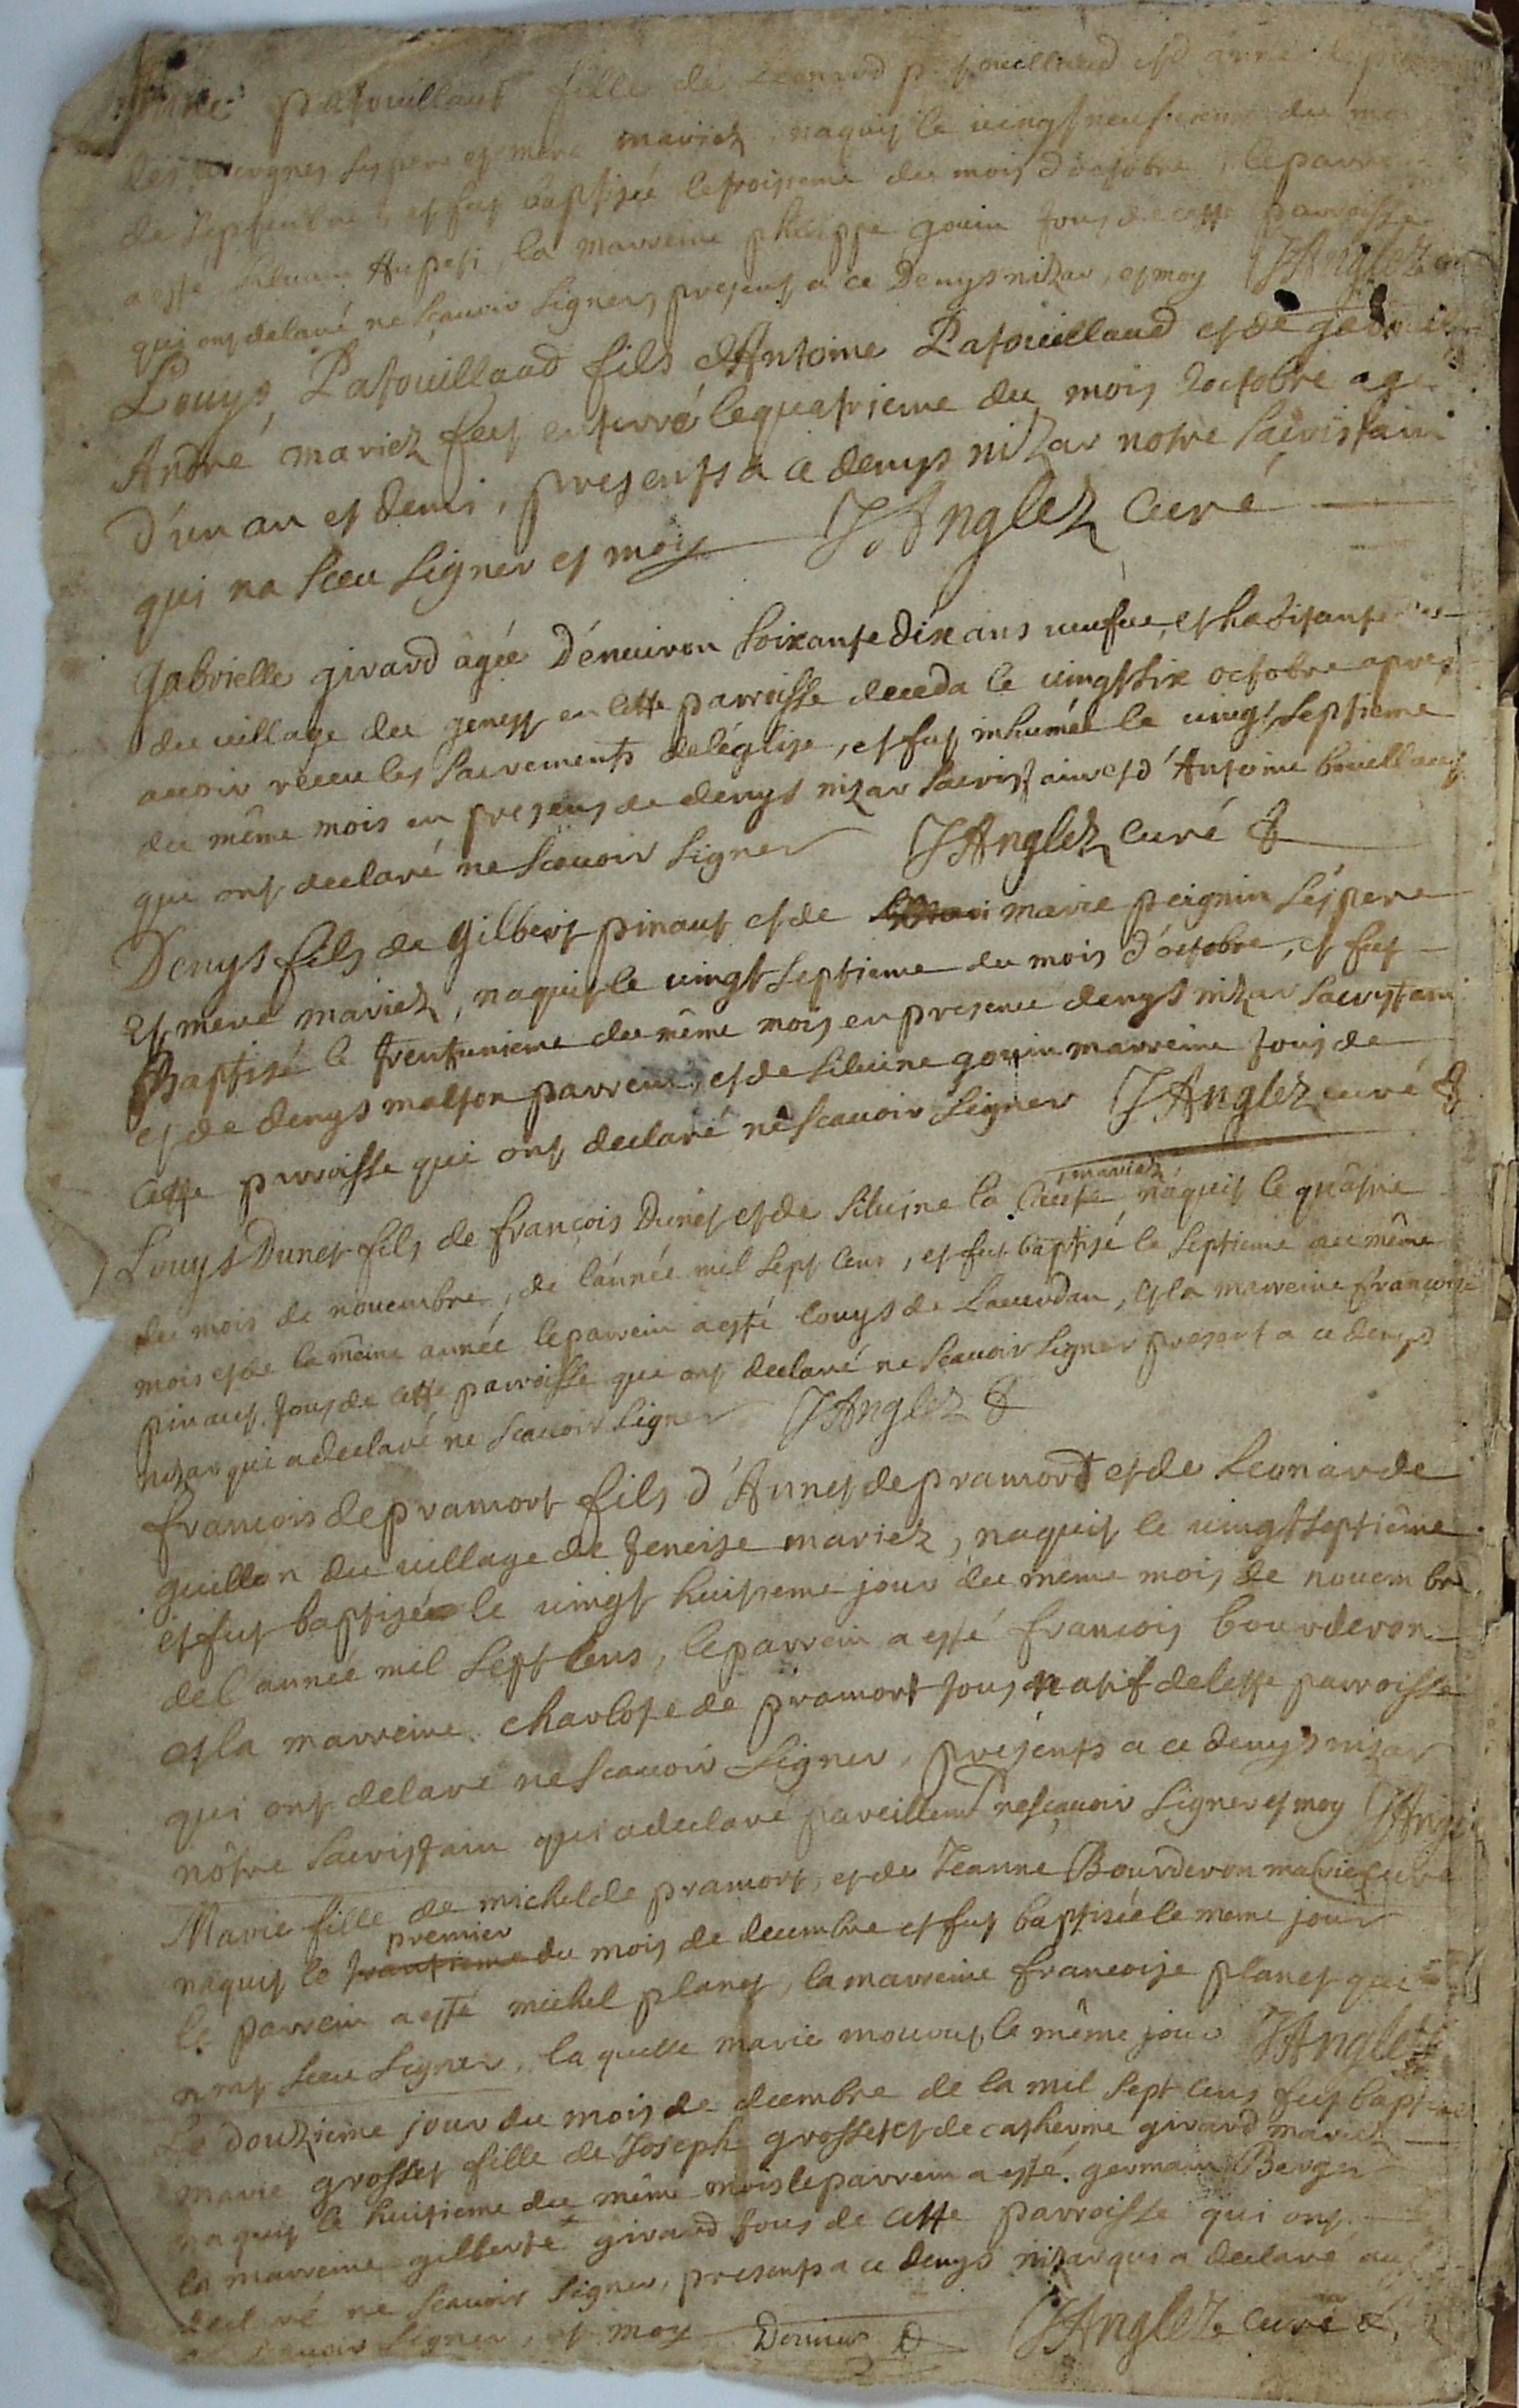 patouillaut fille de Leonard patouillaud et d'anne
des vergnes ses pere et mere mariez, naquit le vingt neufvieme du mois
de septembre, et fut baptisée le troisieme du mois d'octobre, le parrein
a esté Silvain Aupeti, la marreine philippe gouin tous de cette parroisse
qui ont delaré ne scavoir signer, present a ce Denys nizar, et moy JAnglez
Louys Patouillaud fils d'Antoine Patouillaud et de
André mariez fut enterré le quatrieme du mois d'octobre agé
d'un an et demi, presents a ce denys nizar notre sacristain
qui na sceu signer et moy JAnglez curé
Gabrielle girard agée d'environ soixante dix ans veufve, et habitante
du village du genest en cette parroisse deceda le vingt six octobre apres
avoir receu les sacrements de l'église, et fut inhumée le vingt septieme
du même mois en presens de denys nizar sacristain et d'Antoine bouillaut
qui ont declaré ne scavoir signer JAnglez curé
Denys fils de gilbert pinaut et de marie peignin ses pere
et mere mariez, naquit le vingt septieme du mois d'octobre, et fut
Baptisé le trentunieme du même mois en presence denys nizar sacristain
et de denys malson parrein, et de silvine gouin marreine tous de
cette parroisse qui ont declaré ne scavoir signer JAnglez curé
Louys Dunet fils de françois Dunet et de silvine la mariez naquit le quatrie
du mois de novembre, de l'année mil sept cens, et fut baptisé le septieme du même
mois et de la même année le parrein a esté louys de Lacourdan, et la marreine françoise
pinaut, tous de cette parroisse qui ont declaré ne scavoir signer present a ce denys
nizar qui a declaré ne scavoir signer JAnglez
françois de pramort fils d'Annet de pramort et de Leonarde
guillon du village de teneise mariez, naquit le vingt septiême
et fut baptisé le vingt huitieme jour du meme mois de novembre
de l'année mil sept cens, le parrein a esté françois bourderon
et la marreine charlote de pramort tous natif de cette parroisse
qui ont delaré ne scavoir signer, presents a ce denys nizar
nôtre sacristain qui a declaré pareillemt ne scavoir signer et moy JAnglez
Marie fille de michel de pramort, et de Jeanne Bourderon mariez
naquit le premier du mois de decembre et fut baptisée le meme jour
le parrein a esté michel planet, la marreine françoise planet qui
n'ont sceu signer, la quelle marie mourut le même jour JAnglez
Le douzieme jour du mois de decembre de la mil sept cens fut baptisée
marie grosset fille de Joseph grosset et de catherine girard mariez
naquit le huitieme du même mois le parrein a esté germain Berger
la marreine gilberte girard tous de cette parroisse qui ont
declaré ne scavoir signer, presents a ce denys nizar qui a declaré
scavoir signer, et moy Dernier JAnglez curé